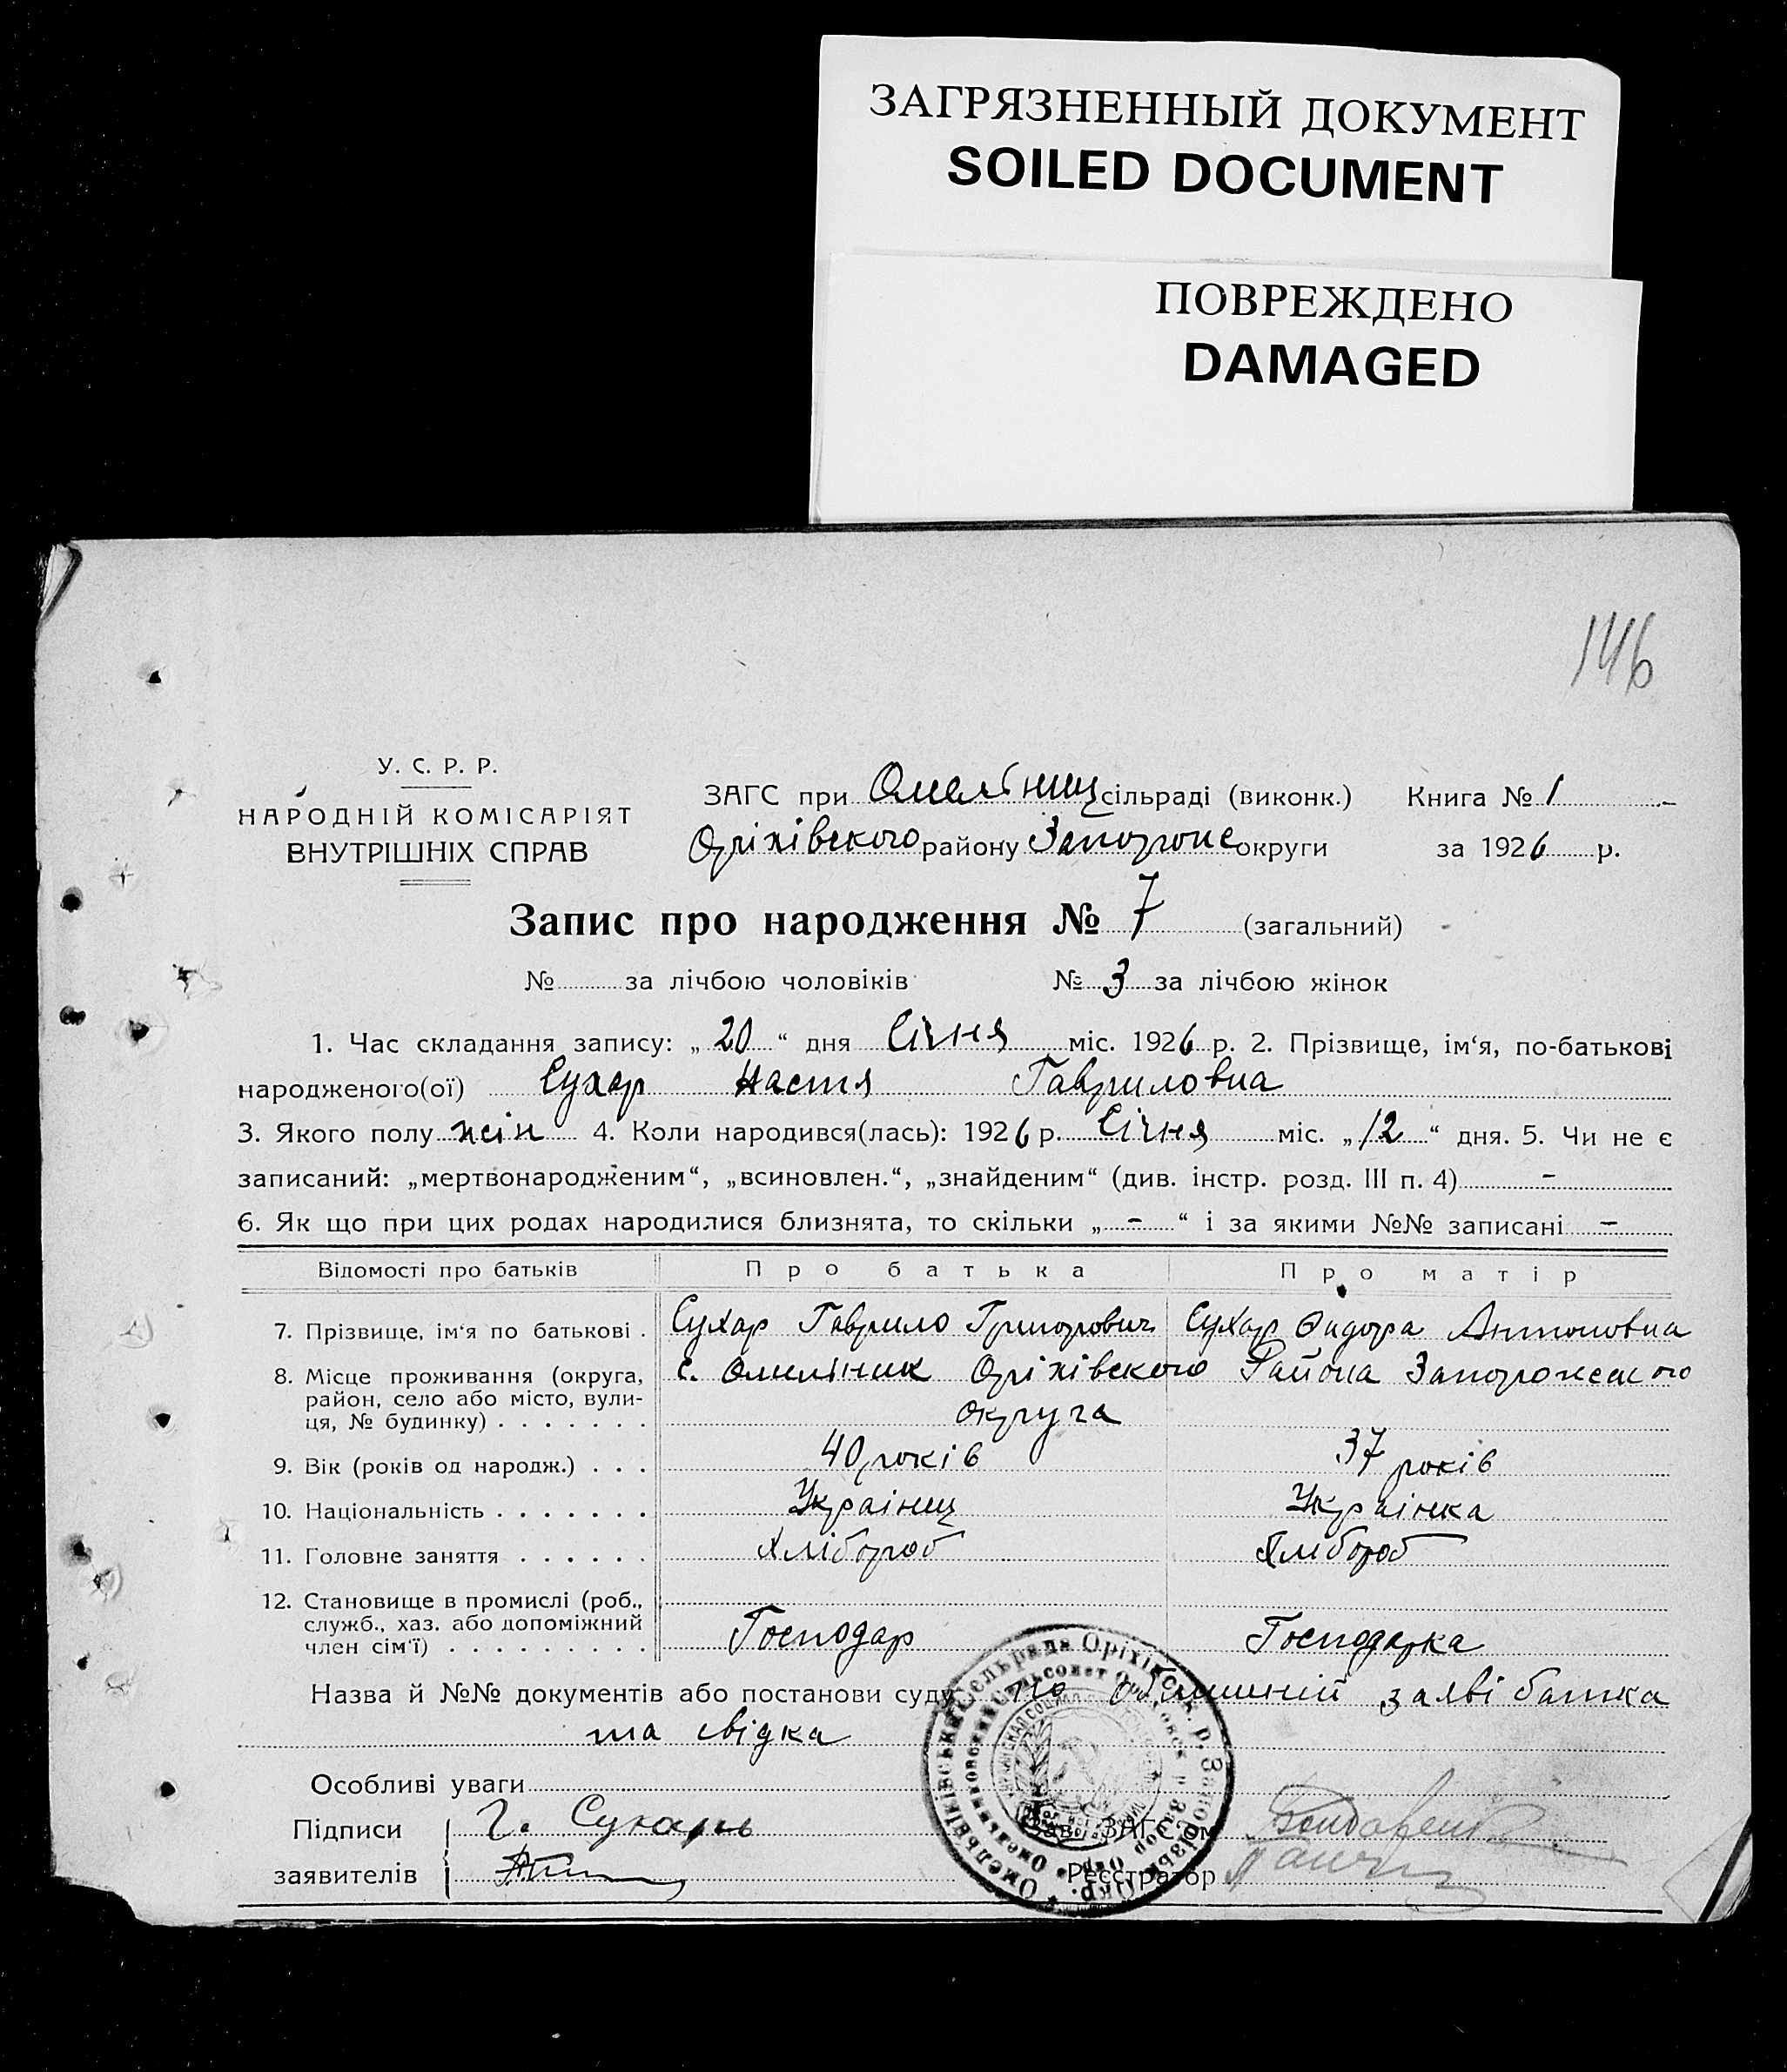 ЗАГРЯЗНЕННЫЙ ДОКУМЕНТ
SOILED DOCUMENT
ПОВРЕЖДЕНО
DAMAGED
146
У. С. Р. Р.
НАРОДНІЙ КОМІСАРІЯТ
ВНУТРІШНІХ СПРАВ
ЗАГС при Омельниц сільраді (виконк.) Книга № 1
Оріхівського району Запоріжс округи за 1926 р.
Запис про народження № 7 (загальний)
№ за лічбою чоловіків № 3 за лічбою жінок
1. Час складання запису: „20“ дня Січня міс. 1926 р. 2. Прізвище, ім‘я, по-батькові
народженого(ої) Сухар Настя Гавриловна
3. Якого полу жін 4. Коли народився(лась): 1926 р. Січня міс. „12“ дня. 5. Чи не є
записаний: „мертвонародженим“, „всиновлен.“, „знайденим“ (див. інстр. розд. III п. 4) -
6. Як що при цих родах народилися близнята, то скільки „-“ і за якими №№ записані -
Відомості про батьків Про батька Про матір
7. Прізвище, ім‘я по батькові . Сухар Гаврило Григорович Сухар Федора Антоновна
8. Місце проживання (округа, с. Омельник Оріхівского Района Запорожского
район, село або місто, вули-
ця, № будинку) . . . . . . . округа
9. Вік (років од народж.) . . . 40 років 37 років
10. Національність . . . . . . . Українец Українка
11. Головне заняття . . . . . . Хлібороб Хлібороб
12. Становище в промислі (роб.,
служб., хаз. або допоміжний
член сім‘ї) . . . . . . . . . Господар Господарка
Назва й №№ документів або постанови суду по заяві батька
та свідка
Особливі уваги
Підписи Г. Сухарь Зав. ЗАГС‘ом
заявителів Реєстратор